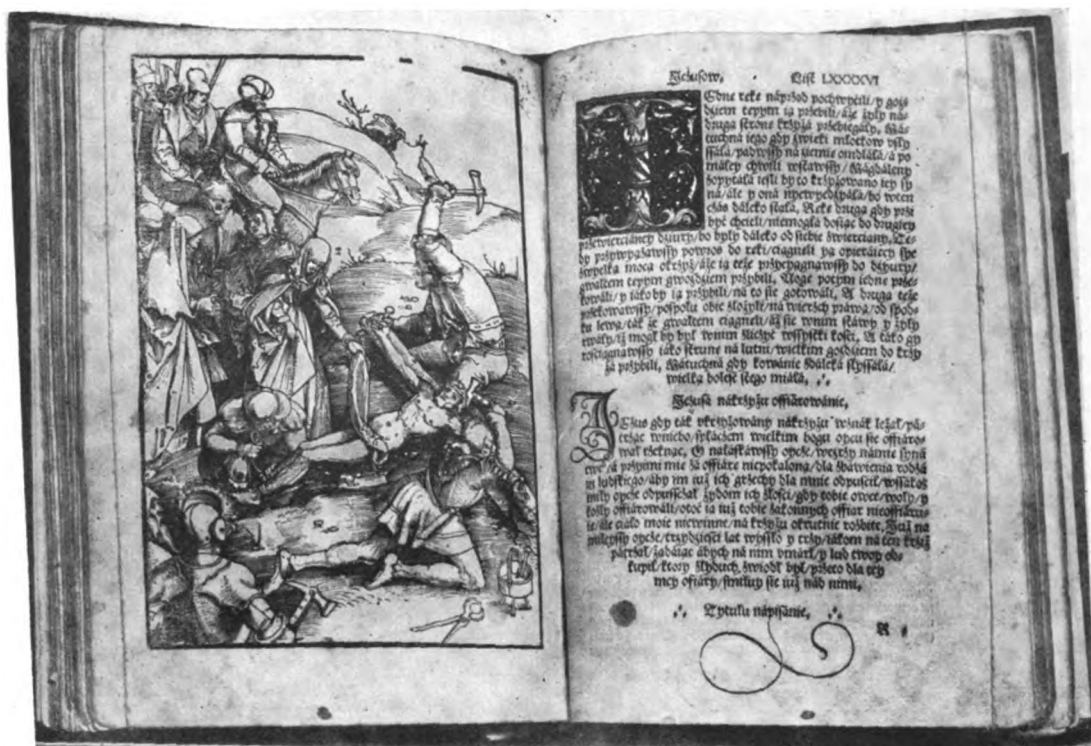 Jezusow. List LXXXXVI
IEdne reke náprzod pochwycili/ y gozdziem
tepym ią przebili/ áże żyły ná
drugą strone krzyżá przebiegáły. Mátuchná
iego gdy zwieki młotkow vsłyssáłá/
padwssy ná ziemie omdláłá/ á po
máłey chwili wstáwssy/ Mágdáleny
zopytáłá iesli by to krzyżowano iey syná/
ále y oná niewiedziáłá/ bo wten
czás dáleko stáłá. Reke drugą gdy przibyć
chcieli/ niemogłá dosiąc do drugiey
przewierciáney dziury/ bo były dáleko od siebie zwierciány. Tedy
przywyązáwssy powroz do reki/ ciągneli ya opieráiecy sye
zwyelką mocą okrzyż/ áże ią teże przyciągnáwssy do dziury/
gwałtem tepym gwozdziem przybili. Noge potym iedne przekowáli/
y iákoby ią przybili/ ná to sie gotowáli. A drugą teże
przekowáwssy/ pospołu obie złożyli/ ná wierzch práwą/ od spodku
lewą/ ták że gwałtem ciągneli/ áż sie wnim stáwy y żyły
rwáły/ iż mogł by był wnim zliczyć wssyćki kości. A táko gy
rościągnąwssy iáko strune ná lutni/ wielkim gozdziem do krzyżá
przybili. Mátuchná gdy kowánie zdáleká słyssáłá/
wielką boleść stego miáłá.
Jezusá nákrzyżu offiárowánie.
JEzus gdy ták vkrzyżowány nákrzyżu wznák leżał/ pátrząc
wniebo/ spłáczem wielkim bogu oycu sie offiárowáł
rzeknąc. O náłáskáwssy oycze/ weyrzy námie syná
twe/ á przyimi mie zá offiáre niepokaloną/ dla zbáwienia rodzáiu
ludzkiego/ áby im iuż ich grzechy dla mnie odpuścił/ wssákoż
miły oycze odpussczał żydom ich złości/ gdy tobie owce/ woły/ y
kozły offiárowáli/ otoć ia iuż tobie zakonnych offiar nieoffiáruie/
ále ciáło moie niewinne/ ná krzyżu okrutnie rozbite. Już namileyssy
oycze/ trzydzieści lat wyssło y trzy/ iákom ná ten krzyż
pátrzał/ żádáiąc ábych ná nim vmárł/ y lud twoy odkupił/
ktory zły duch zwiodł był/ przeto dla tey
mey ofiáry/ smiłuy sie iuż nád nimi.
Tytułu nápisánie.
R